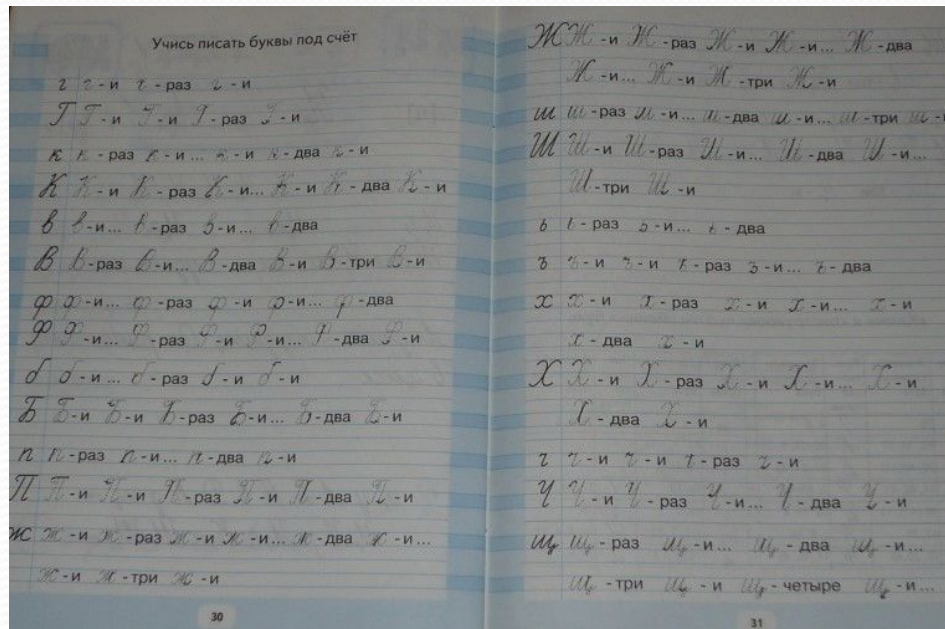 Учись писать буквы под счёт
г г - и г - раз г - и
Г Г - и Г - и Г - раз Г - и
к к - раз к - и ... к - и к - два к - и
К К - и К - раз К - и... К - и К - два К - и
в в - и ... в - раз в - и ... в - два
В В - раз В - и... В - два В - и В - три В - и
ф ф - и... ф - раз ф - и ф - и... ф - два
Ф Ф - и... Ф - раз Ф - и Ф - и... Ф - два Ф - и
б б - и ... б - раз б - и б - и
Б Б - и Б - и Б - раз Б - и ... Б - два Б - и
п п - раз п - и ... п - два п - и
П П - и П - и П - раз П - и П - два П - и
ж ж - и ж - раз ж - и ж - и... ж - два ж - и ...
ж - и ж - три ж - и
30
Ж Ж - и Ж - раз Ж - и Ж - и... Ж - два
Ж - и... Ж - и Ж - три Ж - и
ш ш - раз ш - и ... ш - два ш - и ... ш - три ш - и
Ш Ш - и Ш - раз Ш - и... Ш - два Ш - и...
Ш - три Ш - и
ь ь - раз ь - и ... ь - два
ъ ъ - и ъ - и ъ - раз ъ - и ... ъ - два
х х - и х - раз х - и х - и... х - и
х - два х - и
Х Х - и Х - раз Х - и Х - и... Х - и
Х - два Х - и
ч ч - и ч - и ч - раз ч - и
Ч Ч - и Ч - раз Ч - и... Ч - два Ч - и
щ щ - раз щ - и ... щ - два щ - и...
щ - три щ - и щ - четыре щ - и ...
31